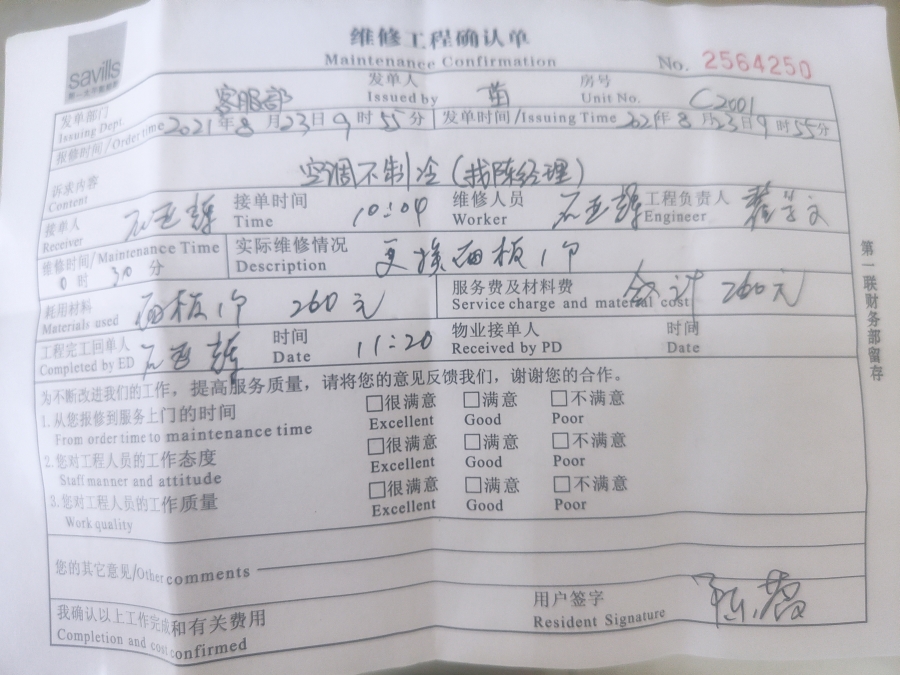 savills
维修工程确认单
Maintenance Confirmation
No. 2564250
发单部门 客服部 发单人 苗 房号 C2001
Issuing Dept. Issued by Unit No.
报修时间/Order time 2021年8月23日9时55分 发单时间/Issuing Time 2021年8月23日9时55分
诉求内容 空调不制冷(找陈经理)
Content
接单人 接单时间 10:04 维修人员 工程负责人
Receiver Time Worker Engineer
维修时间/Maintenance Time 实际维修情况 更换面板1个
0时30分 Description
耗用材料 面板1个 260元 服务费及材料费 合计260元
Materials used Service charge and material cost
工程完工回单人 时间 11:20 物业接单人 时间
Completed by ED Date Received by PD Date
为不断改进我们的工作,提高服务质量,请将您的意见反馈我们,谢谢您的合作。
1.从您报修到服务上门的时间 □很满意 □满意 □不满意
From order time to maintenance time Excellent Good Poor
2.您对工程人员的工作态度 □很满意 □满意 □不满意
Staff manner and attitude Excellent Good Poor
3.您对工程人员的工作质量 □很满意 □满意 □不满意
Work quality Excellent Good Poor
您的其它意见/Other comments
我确认以上工作完成和有关费用 用户签字
Completion and cost confirmed Resident Signature
第一联财务部留存